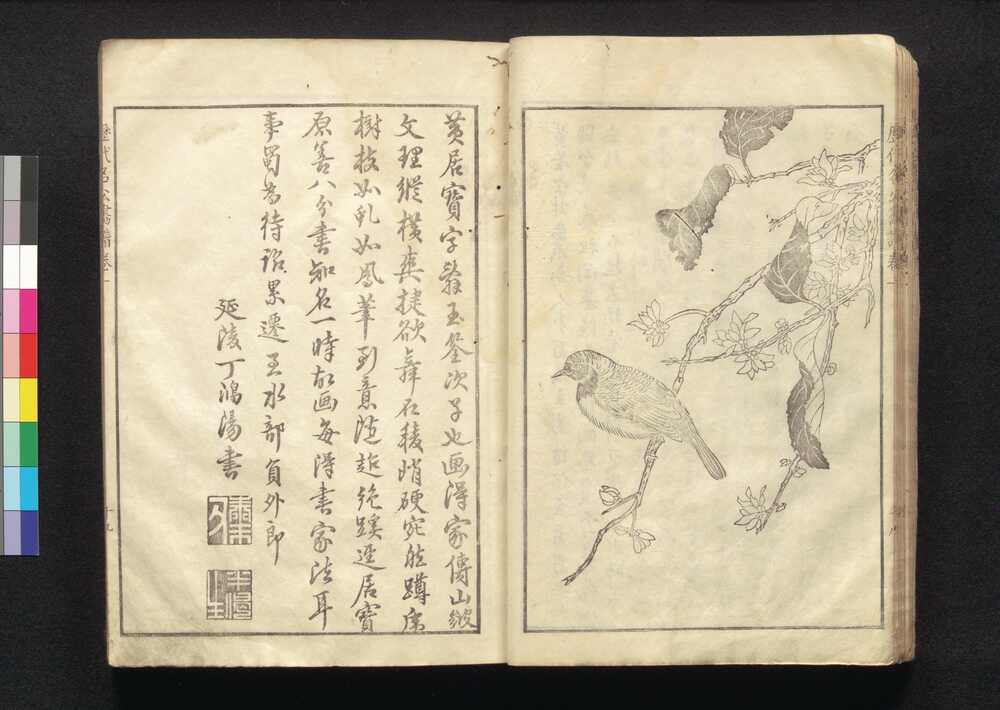 黄居寶字辭玉筌次子也画淂家傳山皴
文理縱橫爽捷欲舞石稜峭硬宛然蹲虎
樹枝如虬如鳳筆到意隨超絶蹊逕居寶
原善八分書知名一時故画每淂書家法耳
事蜀為待詔累遷至水部員外郎
延陵丁鴻陽書
歷代名公畫譜卷一
十九